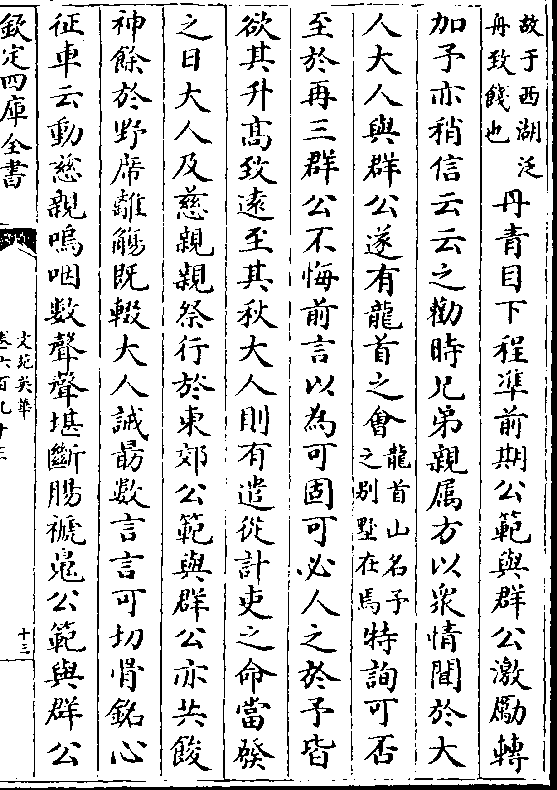 故于西湖泛
舟致餞也
丹青目下程準前期公範與群公激勵轉
加予亦稍信云云之勸時兄弟親属方以衆情聞於大
人大人與群公遂有龍首之會
龍首山名予
之别墅在焉
特詢可否
至於再三群公不悔前言以為可固可必人之於予皆
欲其升髙致遠至其秋大人則有遣從計吏之命當發
之日大人及慈親親祭行於東郊公範與群公亦共餕
神餘於野席離觴既輟大人誠勗數言言可切骨銘心
征車云動慈親嗚咽數聲聲堪斷腸褫鬼公範與群公
欽定四庫全書
文苑英華
卷六百九十三
十三